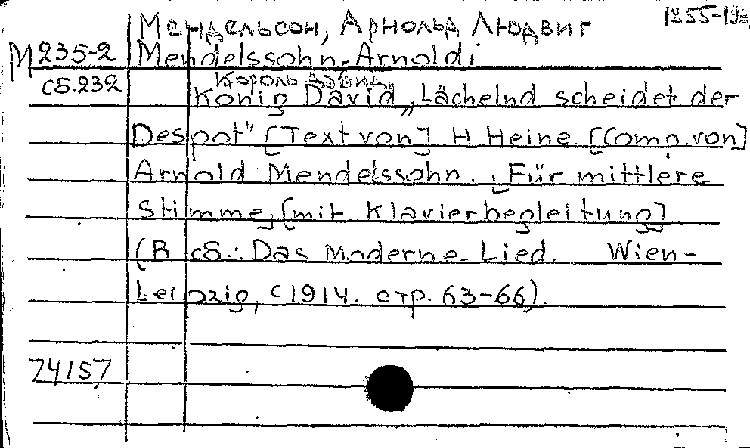 Мендельсон, Арнольд Людвиг 1855-19
М 235-2 Mendelssohn-Arnold;
сб.232 Король Давид
König David „Lächelnd scheidet der
Despot" [Text von] H. Heine [Comp. von]
Arnold Mendelssohn. Für mittlere
Stimme, [mit Klavierbegleitung]
(В сб.: Das Moderne Lied. Wien-
Leipzig, c 1914. стр. 63-66).
74157